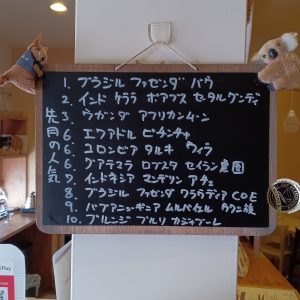 先月の人気
1. ブラジル ファゼンダ バウ
2. インド ケララ ポアブス セタルグンディ
3. ウガンダ アフリカンムーン
6. エクアドル ピチンチャ
6. コロンビア タルキ ウィラ
6. グアテマラ ロブスタ セイラン農園
7. インドネシア マンデリン アチェ
8. ブラジル ファゼンダ クラウディア COE
9. パプアニューギニア ムルパ 
10. ブルンジ ブルリ カジャブーレ
Pay